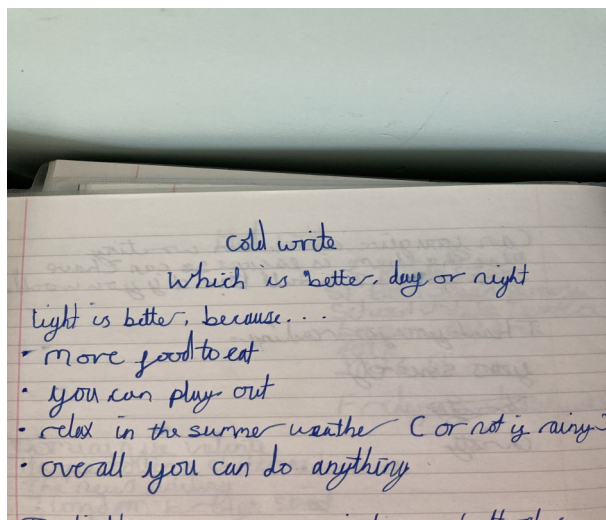 cold write
Which is better, day or night
light is better, because...
• more food to eat
• you can play out
• relax in the summer weather (or not if rainy)
• overall you can do anything